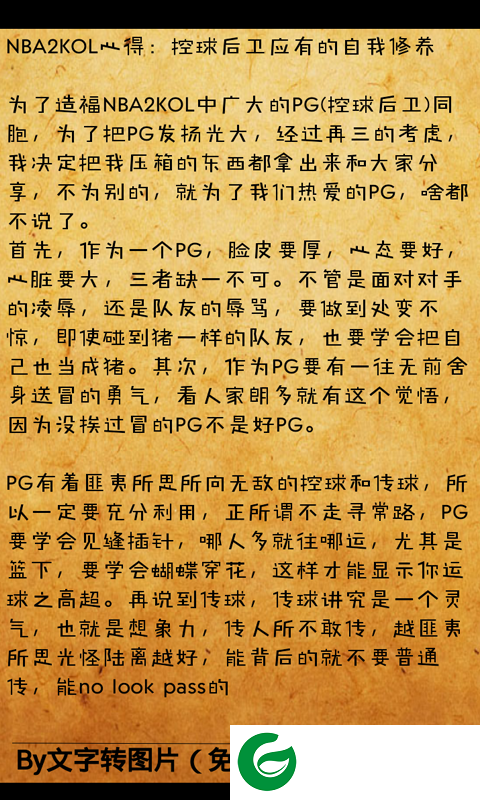 NBA2KOL心得：控球后卫应有的自我修养
为了造福NBA2KOL中广大的PG(控球后卫)同
胞，为了把PG发扬光大，经过再三的考虑，
我决定把我压箱的东西都拿出来和大家分
享，不为别的，就为了我们热爱的PG，啥都
不说了。
首先，作为一个PG，脸皮要厚，心态要好，
心脏要大，三者缺一不可。不管是面对对手
的凌辱，还是队友的辱骂，要做到处变不
惊，即使碰到猪一样的队友，也要学会把自
己也当成猪。其次，作为PG要有一往无前舍
身送冒的勇气，看人家朗多就有这个觉悟，
因为没挨过冒的PG不是好PG。
PG有着匪夷所思所向无敌的控球和传球，所
以一定要充分利用，正所谓不走寻常路，PG
要学会见缝插针，哪人多就往哪运，尤其是
篮下，要学会蝴蝶穿花，这样才能显示你运
球之高超。再说到传球，传球讲究是一个灵
气，也就是想象力，传人所不敢传，越匪夷
所思光怪陆离越好，能背后的就不要普通
传，能no look pass的
By文字转图片（免